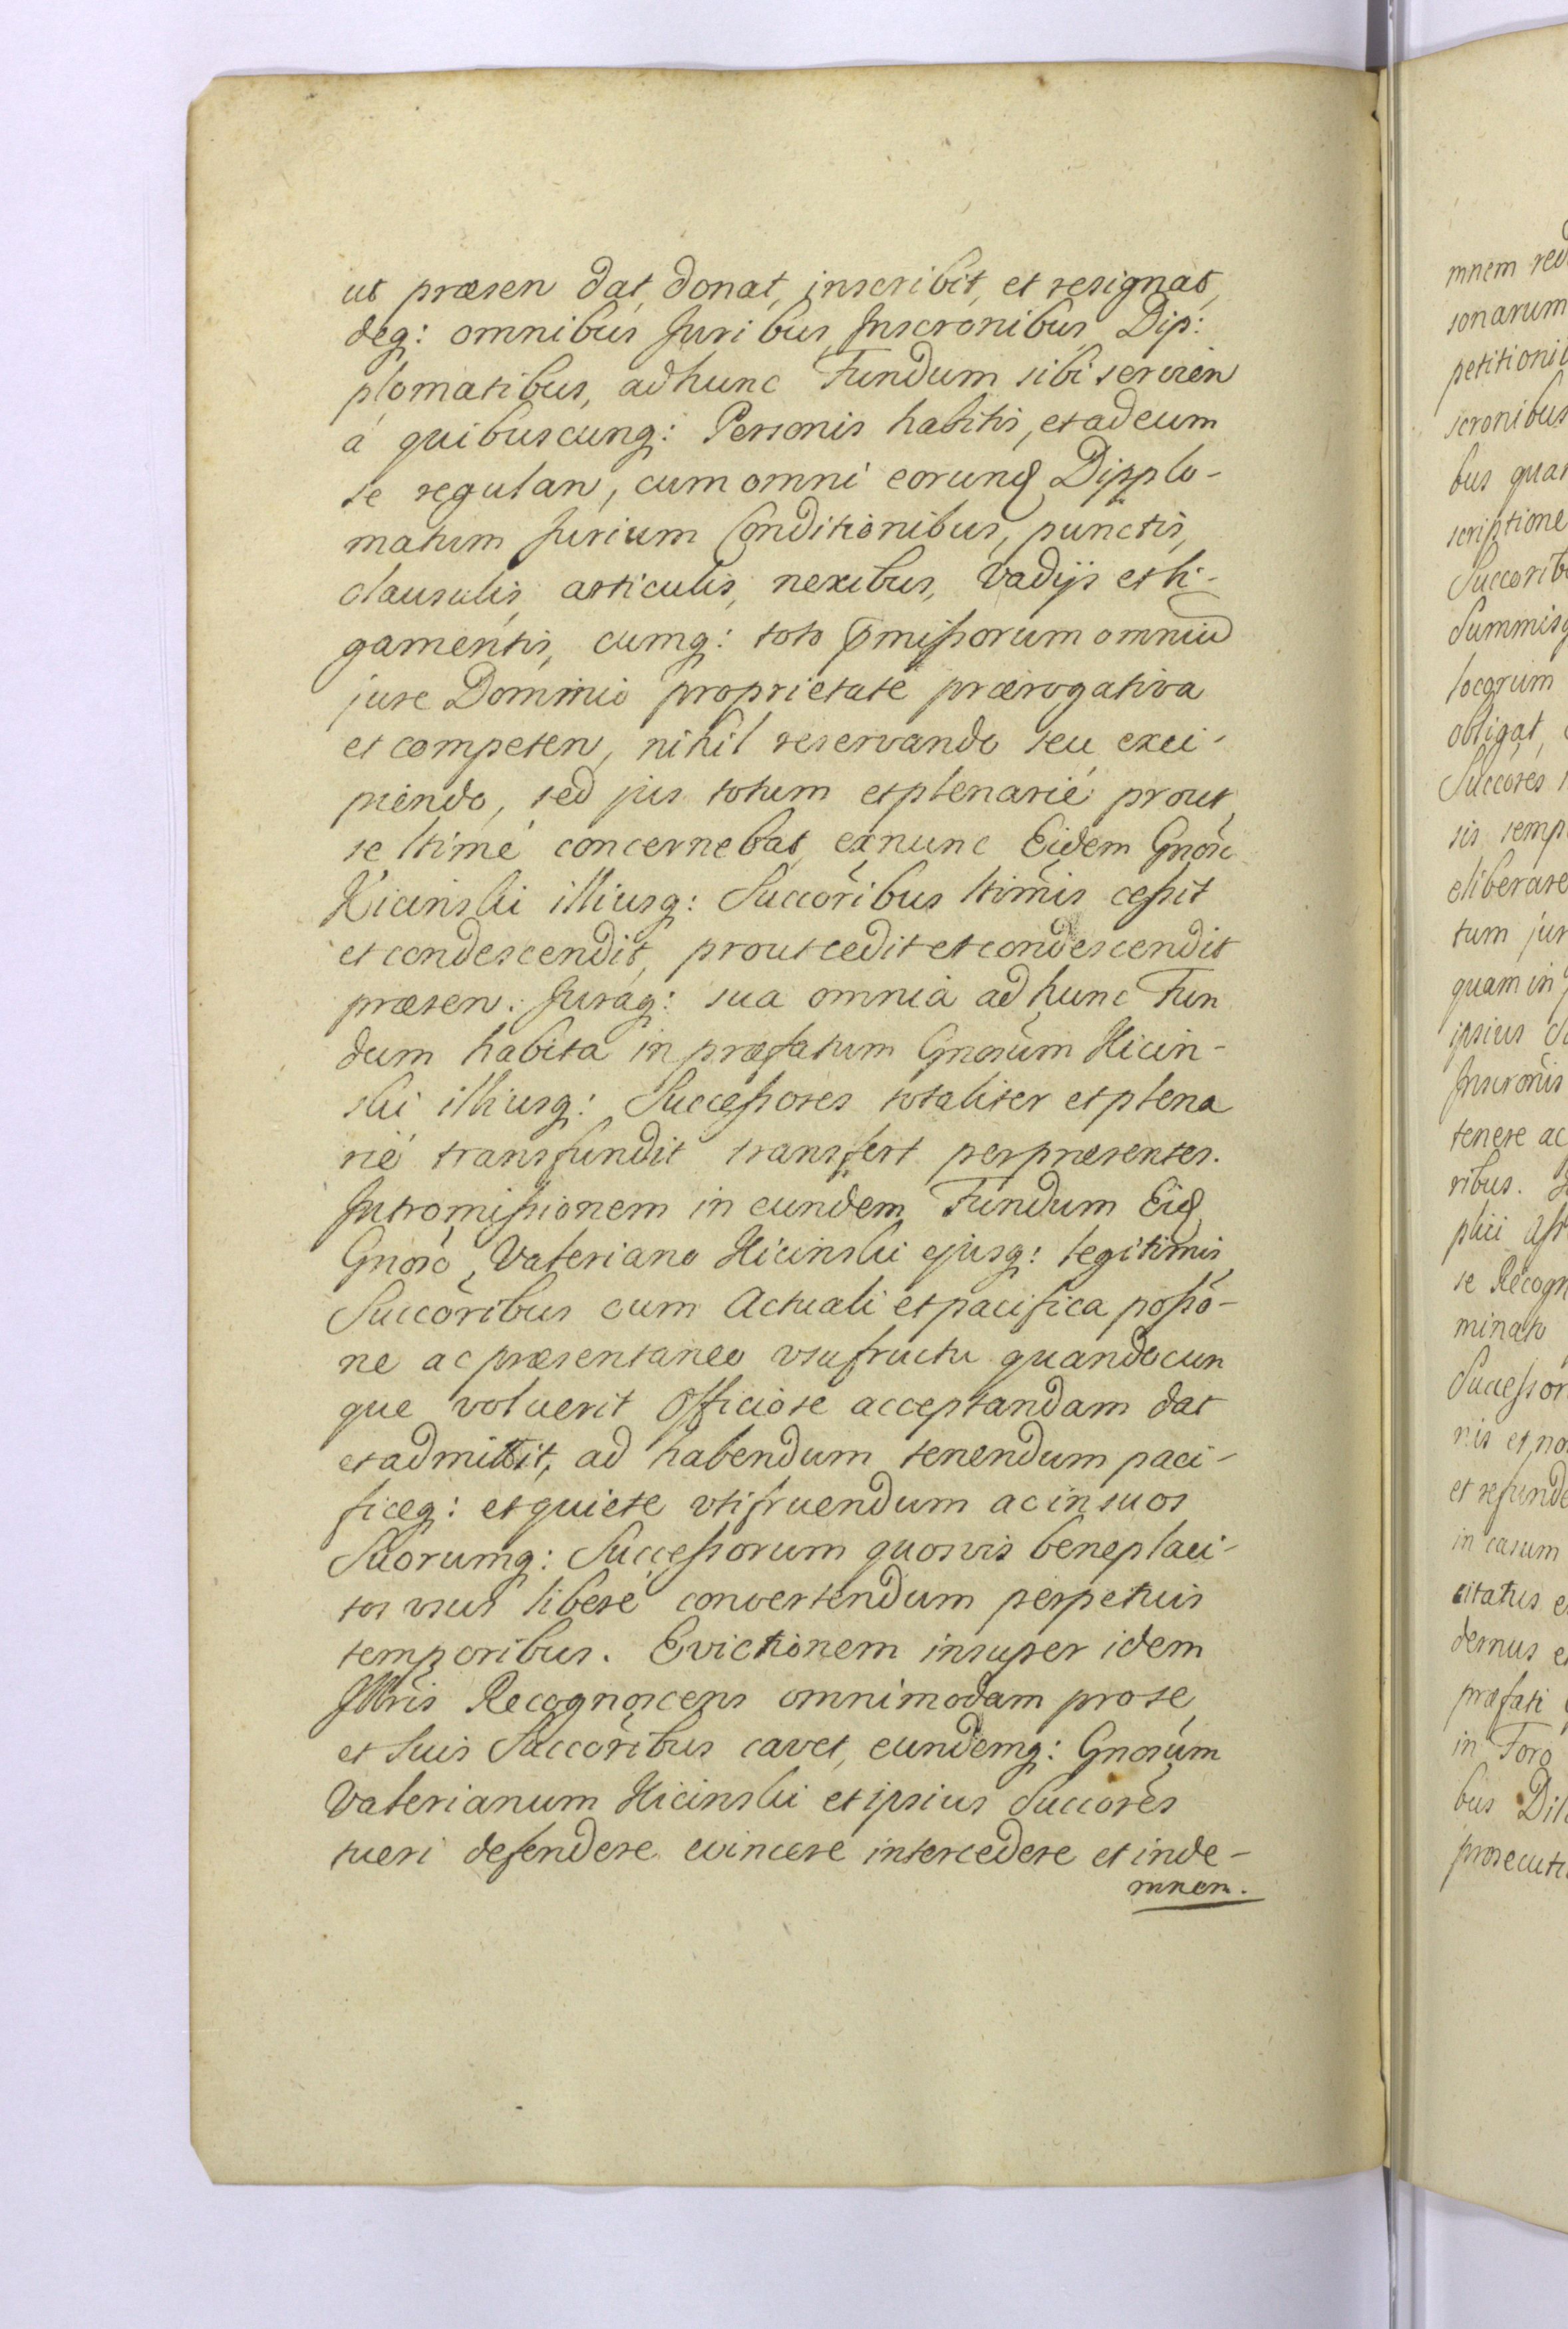 ut præsen dat, donat, inscribit, et resignat,
deq: omnibus Juribus Inscronibus, Dip:
plomatibus, ad hunc Fundum sibi servien
á quibuscunq: Personis habitis, et ad eum
se regulan, cum omni eorund Dipplo-
matum Jurium Conditionibus, punctis,
clausulis, articulis, nexibus, Vadijs et li-
gamentis, cumq: toto pmissorum omniu
jure Dominio proprietate prærogativa
et competen, nihil reservando seu exci-
piendo, sed jus totum et plenarié prout
se ltimé concernebat, exnunc Eidem Gnõso
Kicinski illiusq: Succõribus ltimis cessit
et condescendit, prout cedit et condescendit
præsen. Juraq: sua omnia ad hunc Fun
dum habita in præfatum Gnosum Kicin-
ski illiusq: Successores totaliter et plena
rié transfundit transfert per præsentes.
Intromissionem in eundem Fundum Eid
Gnoso, Valeriano Kicinski ejusq: legitimis
Succõribus cum Actuali et pacifica possõ-
ne ac præsentaneo usufructu quandocun
que voluerit Officiose acceptandam dat
et admittit, ad habendum tenendum paci-
ficeq: et quiete utifruendum ac in suos
Suorumq: Successorum quosvis beneplaci-
tos usus liberé convertendum perpetuis
temporibus. Evictionem insuper idem
Illris Recognoscens omnimodam pro se
et Suis Succõribus cavet, eundemq: Gnosum
Valerianum Kicinski et ipsius Succorẽs
tueri defendere evincere intercedere et inde-
mnem.
mnem
sonarum
scronibus
bus
Succorib
locorum
obligat,
Succores
eliberare
tum
quam in
ipsius
Inscronis
tenere ac
ribus.
plici
se Recogn
minato
Successor
et refunde
in casum
citatus
præfati
in Foro
bus
prosecuti